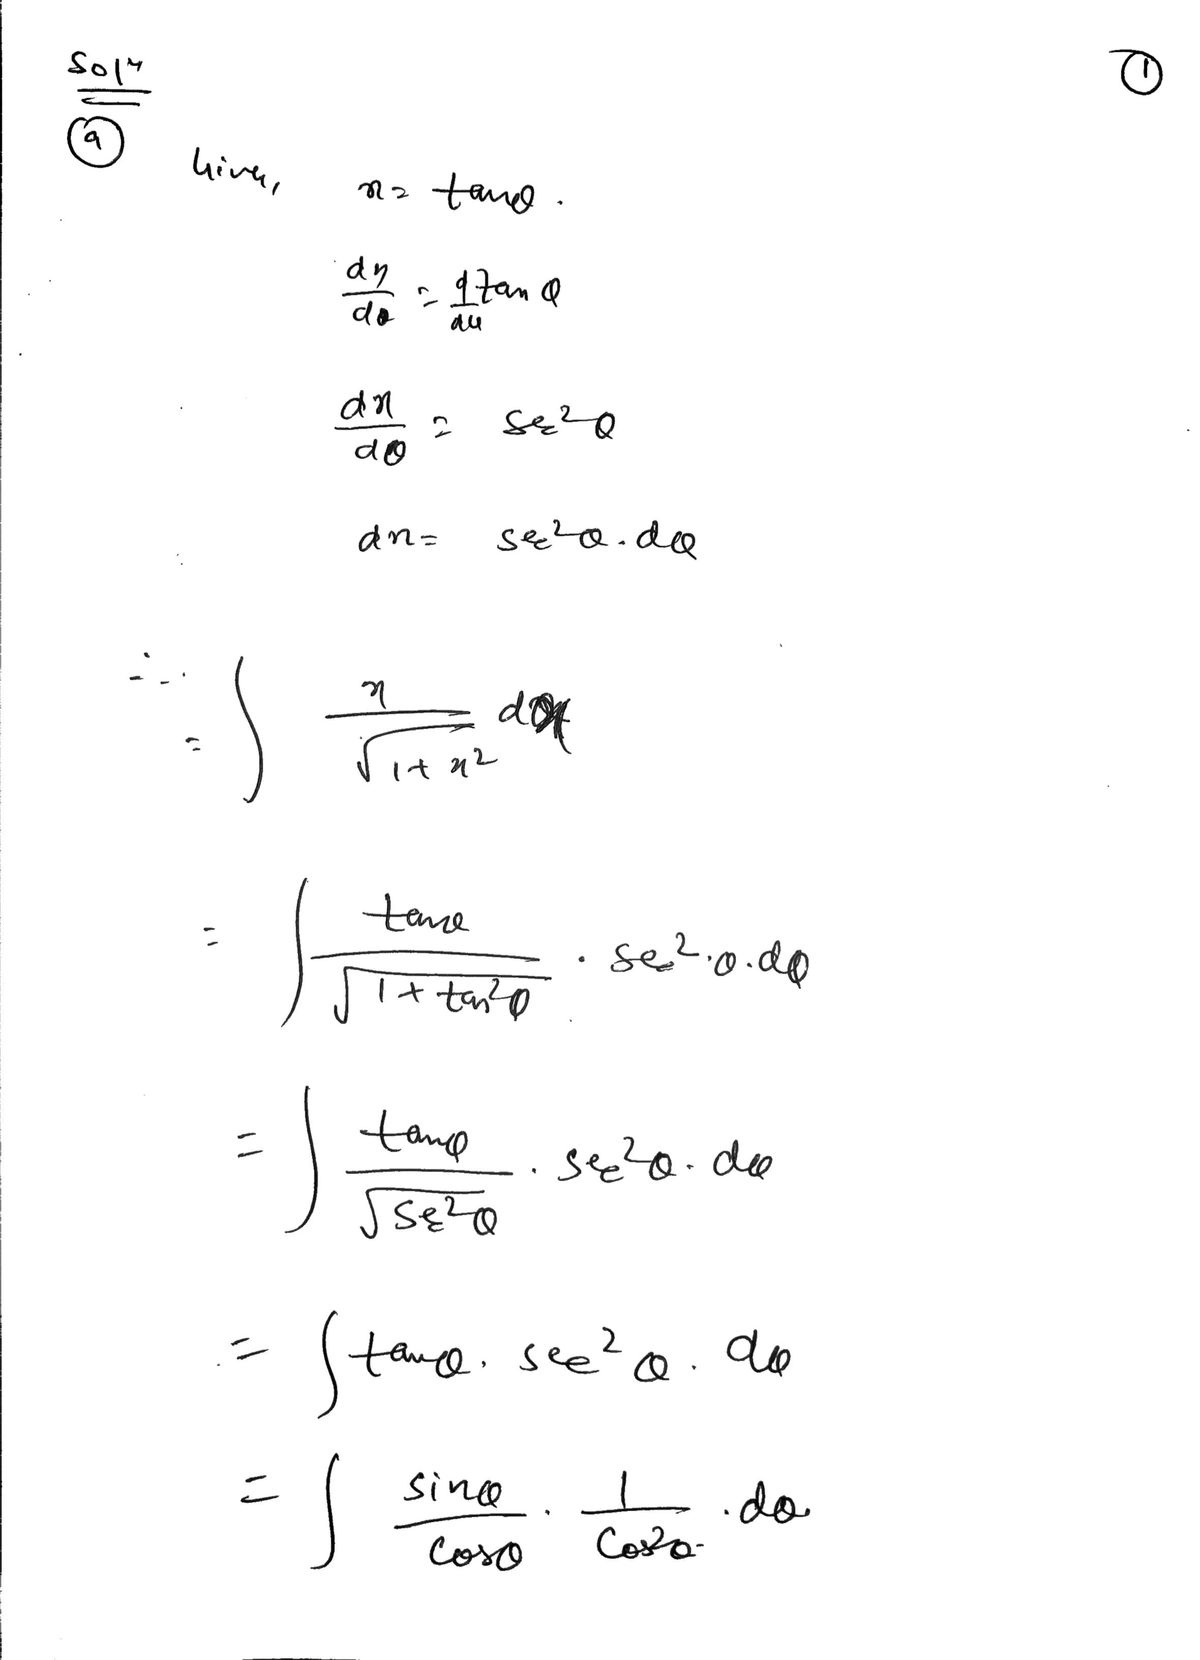 Solⁿ
①
ⓐ
Given, x = tanθ.
dx/dθ = d/dθ tan θ
dx/dθ = sec²θ
dx = sec²θ.dθ
∴
= ∫ x/√(1+x²) dx
= ∫ tanθ/√(1+tan²θ) . sec².θ.dθ
= ∫ tanθ/√(sec²θ) . sec²θ.dθ
= ∫ tanθ. sec²θ. dθ
= ∫ sinθ/cosθ . 1/cos²θ .dθ